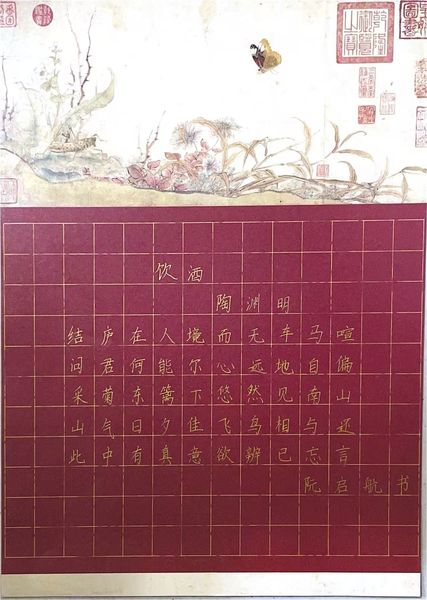 乾隆御覽之寶
饮酒
陶渊明
结庐在人境而无车马喧
问君何能尔心远地自偏
采菊东篱下悠然见南山
山气日夕佳飞鸟相与还
此中有真意欲辨已忘言
阮启航书